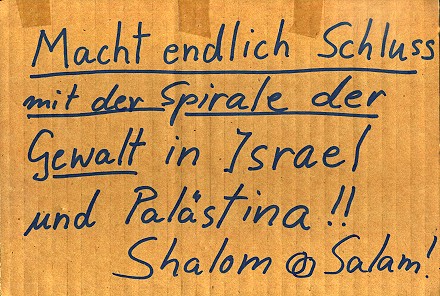 Macht endlich Schluss
mit der Spirale der
Gewalt in Israel
und Palästina!!
Shalom @ Salam!